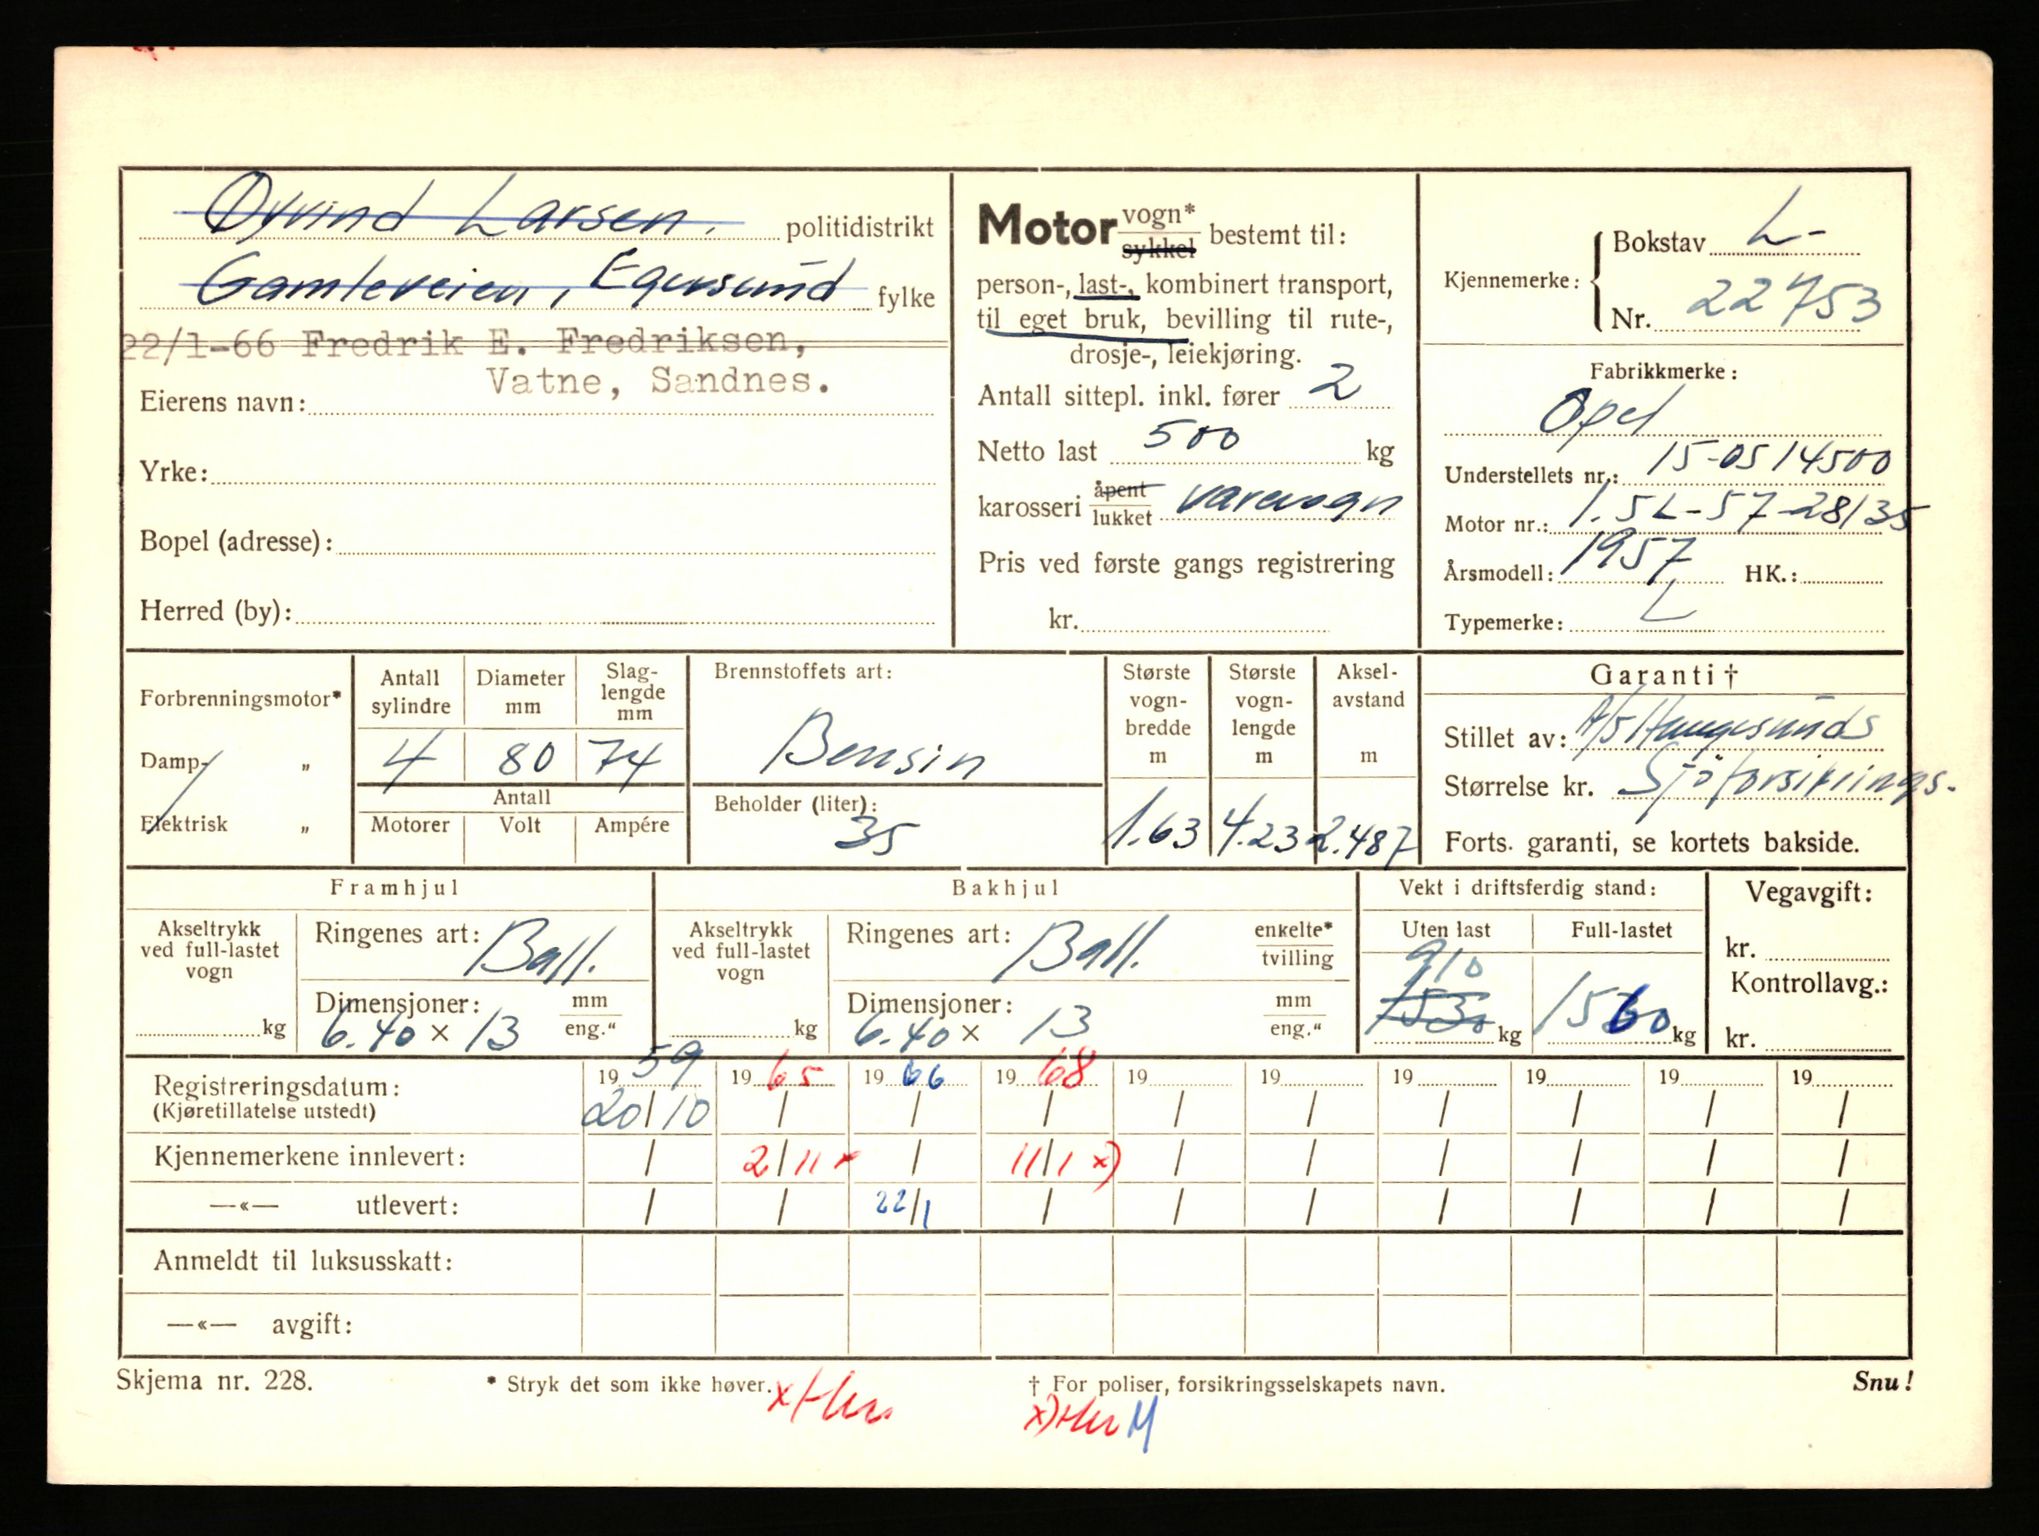 Øyvind Larsen. politidistrikt
Gamleveien, Egersund fylke
22/1-66 Fredrik E. Fredriksen,
Vatne, Sandnes.
Eierens navn:
Yrke:
Bopel (adresse):
Herred (by):
Motor vogn* sykkel bestemt til:
person-, last-, kombinert transport,
til eget bruk, bevilling til rute-,
drosje-, leiekjøring.
Antall sittepl. inkl. fører 2
Netto last 500 kg
karosseri åpent lukket varevogn
Pris ved første gangs registrering
kr.
Kjennemerke: Bokstav L-
Nr. 22753
Fabrikkmerke:
Opel
Understellets nr.: 15-0514500
Motor nr.: 1.5L-57-28135
Årsmodell: 1957 HK.:
Typemerke: L
Forbrenningsmotor*
Damp- „
Elektrisk „
Antall sylindre 4
Diameter mm 80
Slag-lengde mm 74
Antall
Motorer Volt Ampére
Brennstoffets art:
Bensin
Beholder (liter):
35
Største vogn-bredde m 1.63
Største vogn-lengde m 4.23
Aksel-avstand m 2.487
Garanti †
Stillet av: A/S Haugesunds
Størrelse kr. Sjøforsikrings-
Forts. garanti, se kortets bakside.
Framhjul
Akseltrykk ved full-lastet vogn
kg
Ringenes art: Ball.
Dimensjoner: mm eng."
6.40 × 13
Bakhjul
Akseltrykk ved full-lastet vogn
kg
Ringenes art: Ball. enkelte* tvilling
Dimensjoner: mm eng."
6.40 × 13
Vekt i driftsferdig stand:
Uten last Full-lastet
910
1530 kg 1560 kg
Vegavgift:
kr.
Kontrollavg.:
kr.
Registreringsdatum: 19 59 19 65 19 66 19 68 19 19 19 19 19 19
(Kjøretillatelse utstedt) 20/10 / / / / / / / / /
Kjennemerkene innlevert: / 2/11 x / 11/1 x) / / / / / /
—«— utlevert: / / 22/1 / / / / / / /
Anmeldt til luksusskatt:
—«— avgift:
Skjema nr. 228. * Stryk det som ikke høver. † For poliser, forsikringsselskapets navn. Snu!